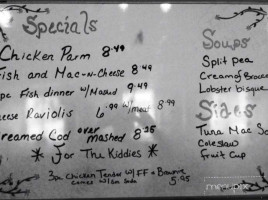 Specials
Chicken Parm 8.49
Fish and Mac-n-Cheese 8.49
pc Fish dinner w/Mashed 9.49
eese Raviolis 6.99 w/meat 8.99
reamed Cod over mashed 8.25
* For Tha Kiddies *
3pc Chicken Tender w/FF + Brownie
comes w/ one side 5.95
Soups
Split Pea
Cream of Brocco
Lobster bisque
Sides
Tuna Mac Sa
Coleslaw
Fruit Cup